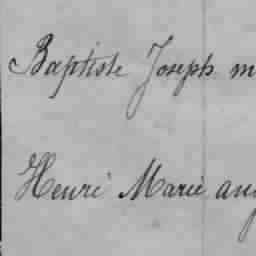 Baptiste Joseph m
Henri Marie aug